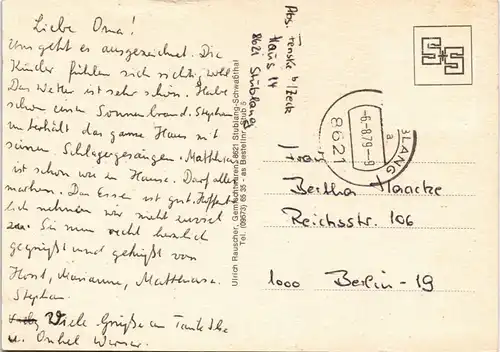 Liebe Oma!
Uns geht es ausgezeichnet. Die
Kinder fühlen sich richtig wohl
Das Wetter ist sehr schön. Habe
schon einen Sonnenbrand. Stephan
unterhält das ganze Haus mit
seinen Schlagergesängen. Matthias
ist schon wie zu Hause. Darf alles
machen. Das Essen ist gut. Hoffent
lich nehmen wir nicht zuviel
zu. Sei nun recht herzlich
gegrüßt und geküßt von
Horst, Marianne, Matthias u.
Stephan.
Viele Grüße an Tante Ilse
u. Onkel Werner.
Abs. Fenske b/Zeck
Haus 14
8621 Stublang
Ulrich Rauscher, Gemischtwaren, 8621 Stublang-Schwabthal
Tel. (09573) 65 35 - as Bestellnr. Stub 5
BLANG
a
-6.-8.79-9
8621
Frau
Bertha Haacke
Reichsstr. 106
1000 Berlin-19